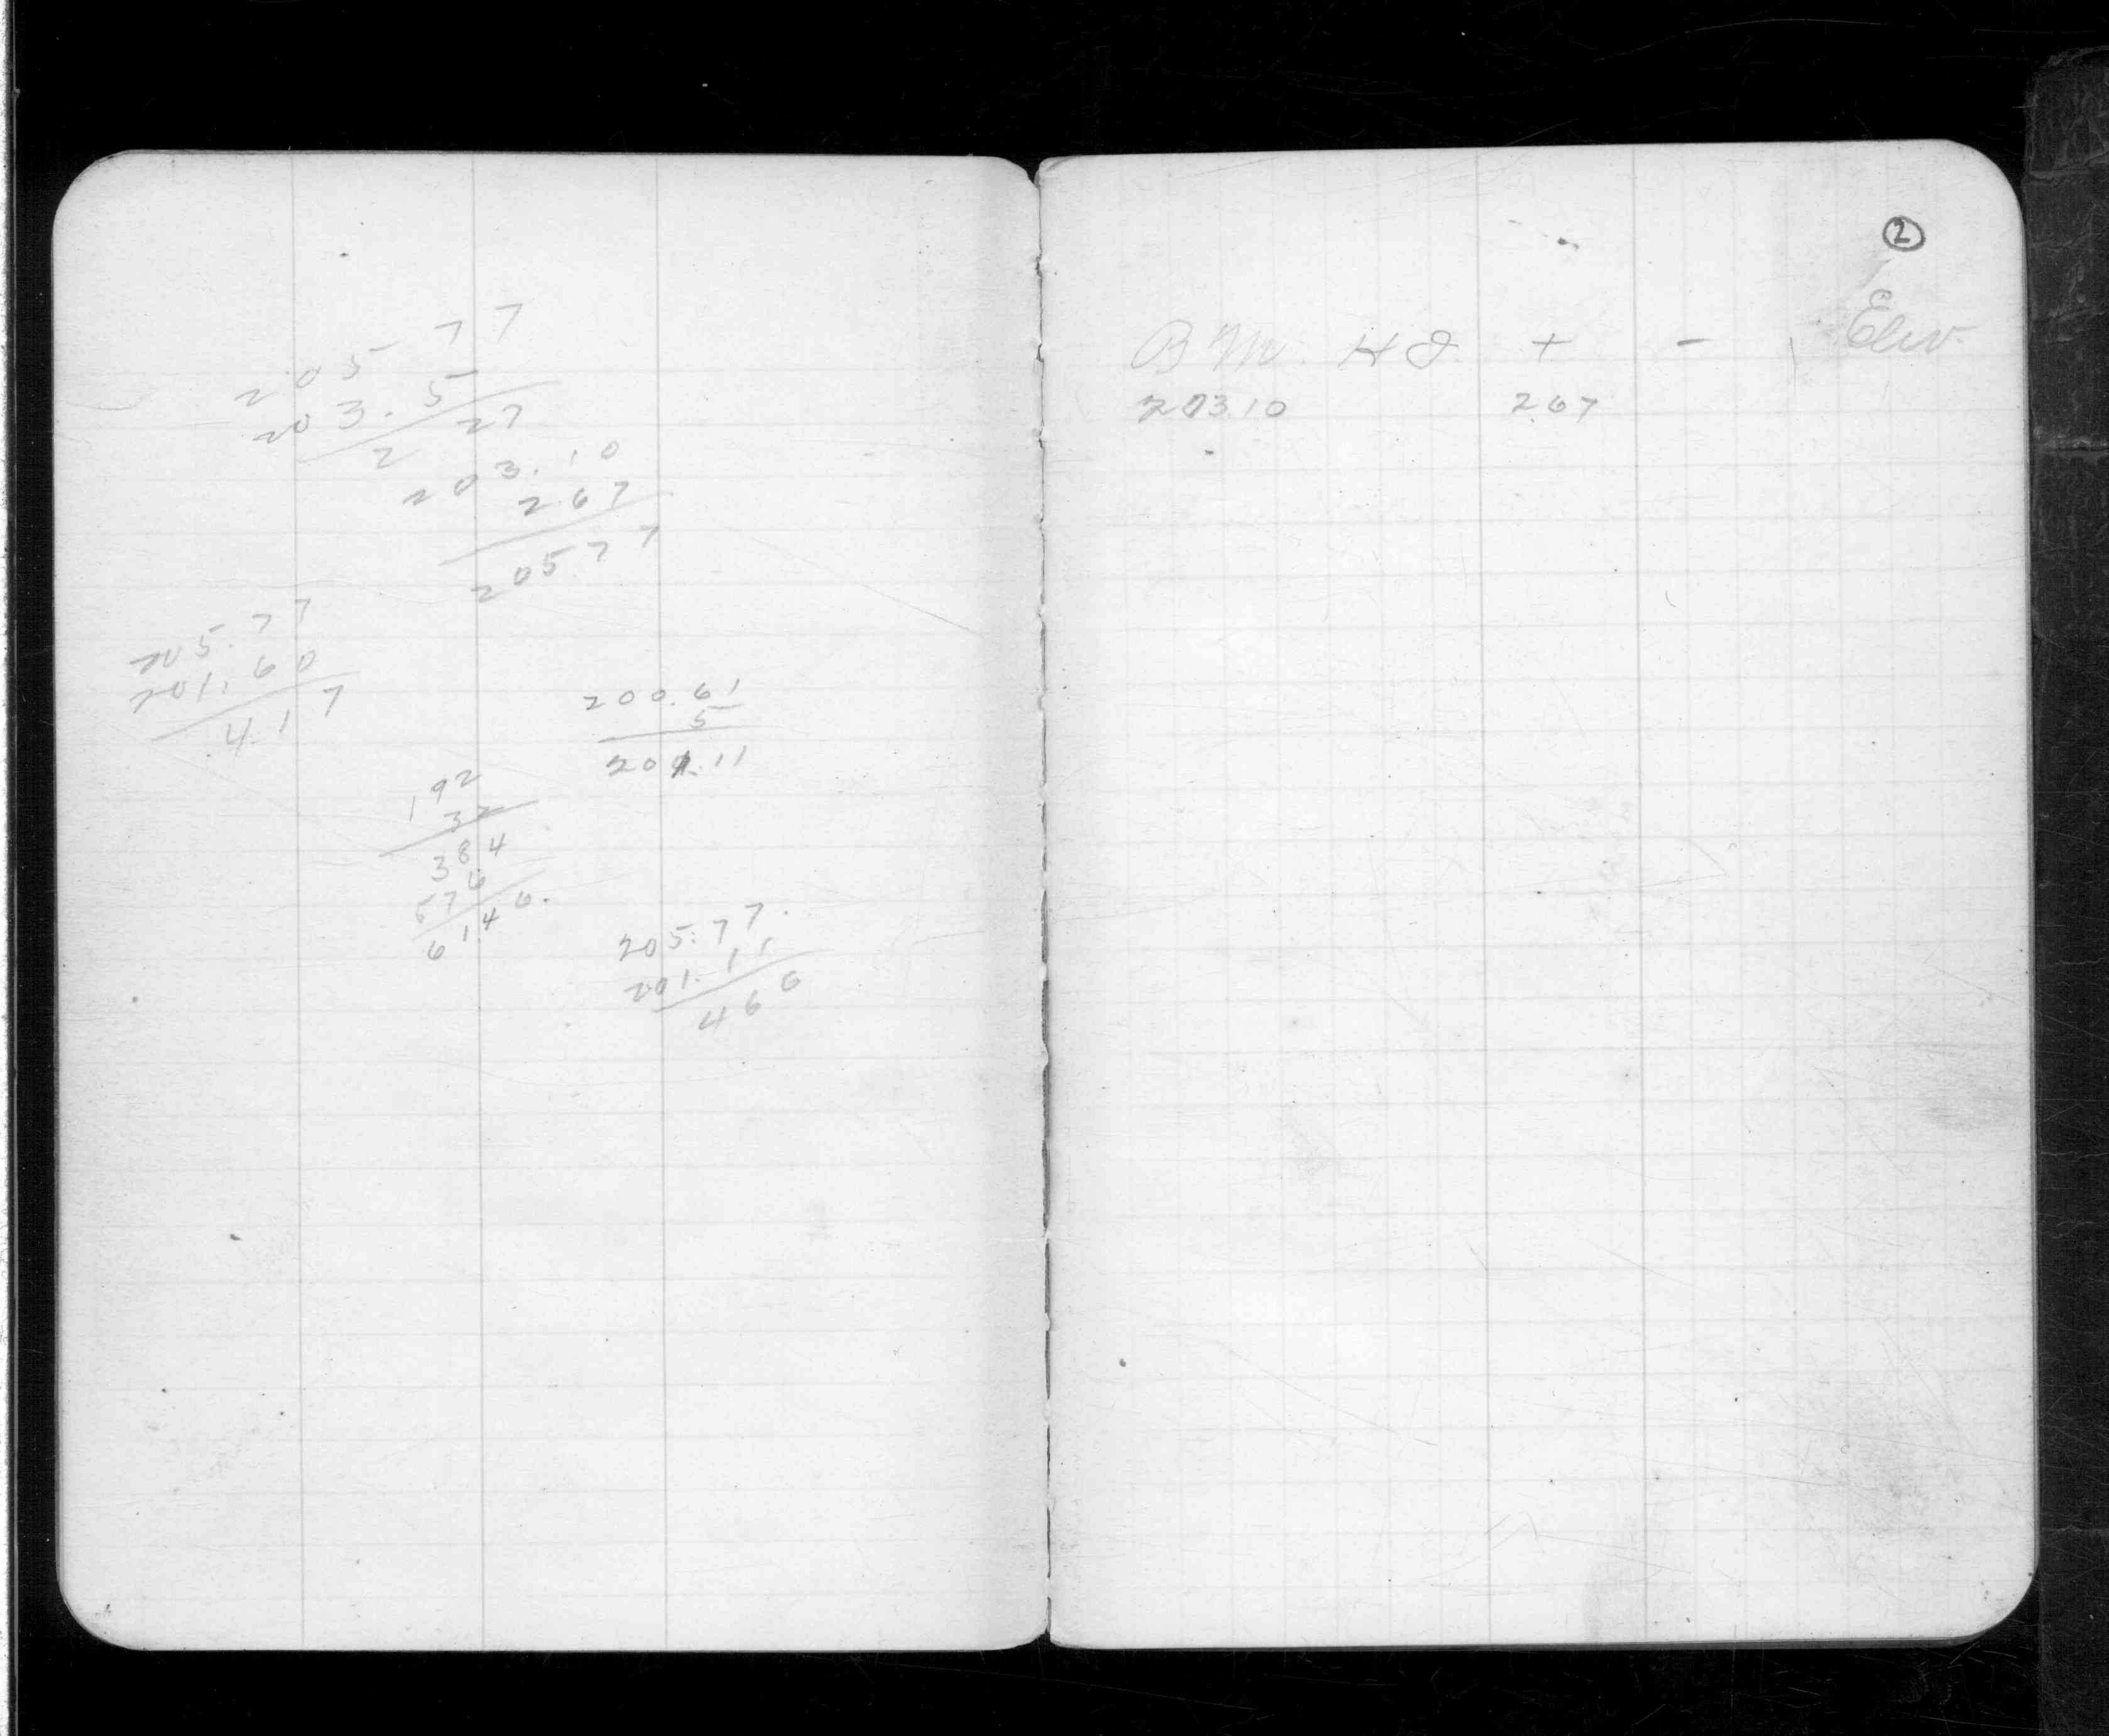 205 77
203.5
2 27
203.10
2.67
205.77
205.77
201.60
4.17
200.61
5
201.11
192
32
384
576
61.4 6.
205.77.
201.11
4 6 6
2
B M. H I. + - Elev.
203.10 2.67